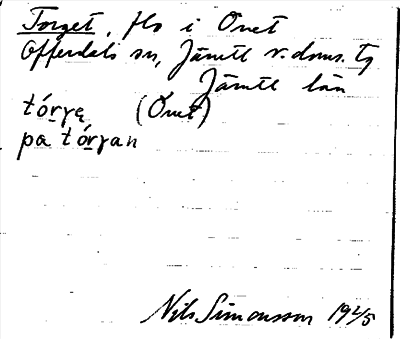 Torget, tlo i Önet
Offerdals sn, Jämtl v. doms. tg
Jämtl län
tórγę (Önet)
pa tórγan
Nils Simonsson 19 2/5